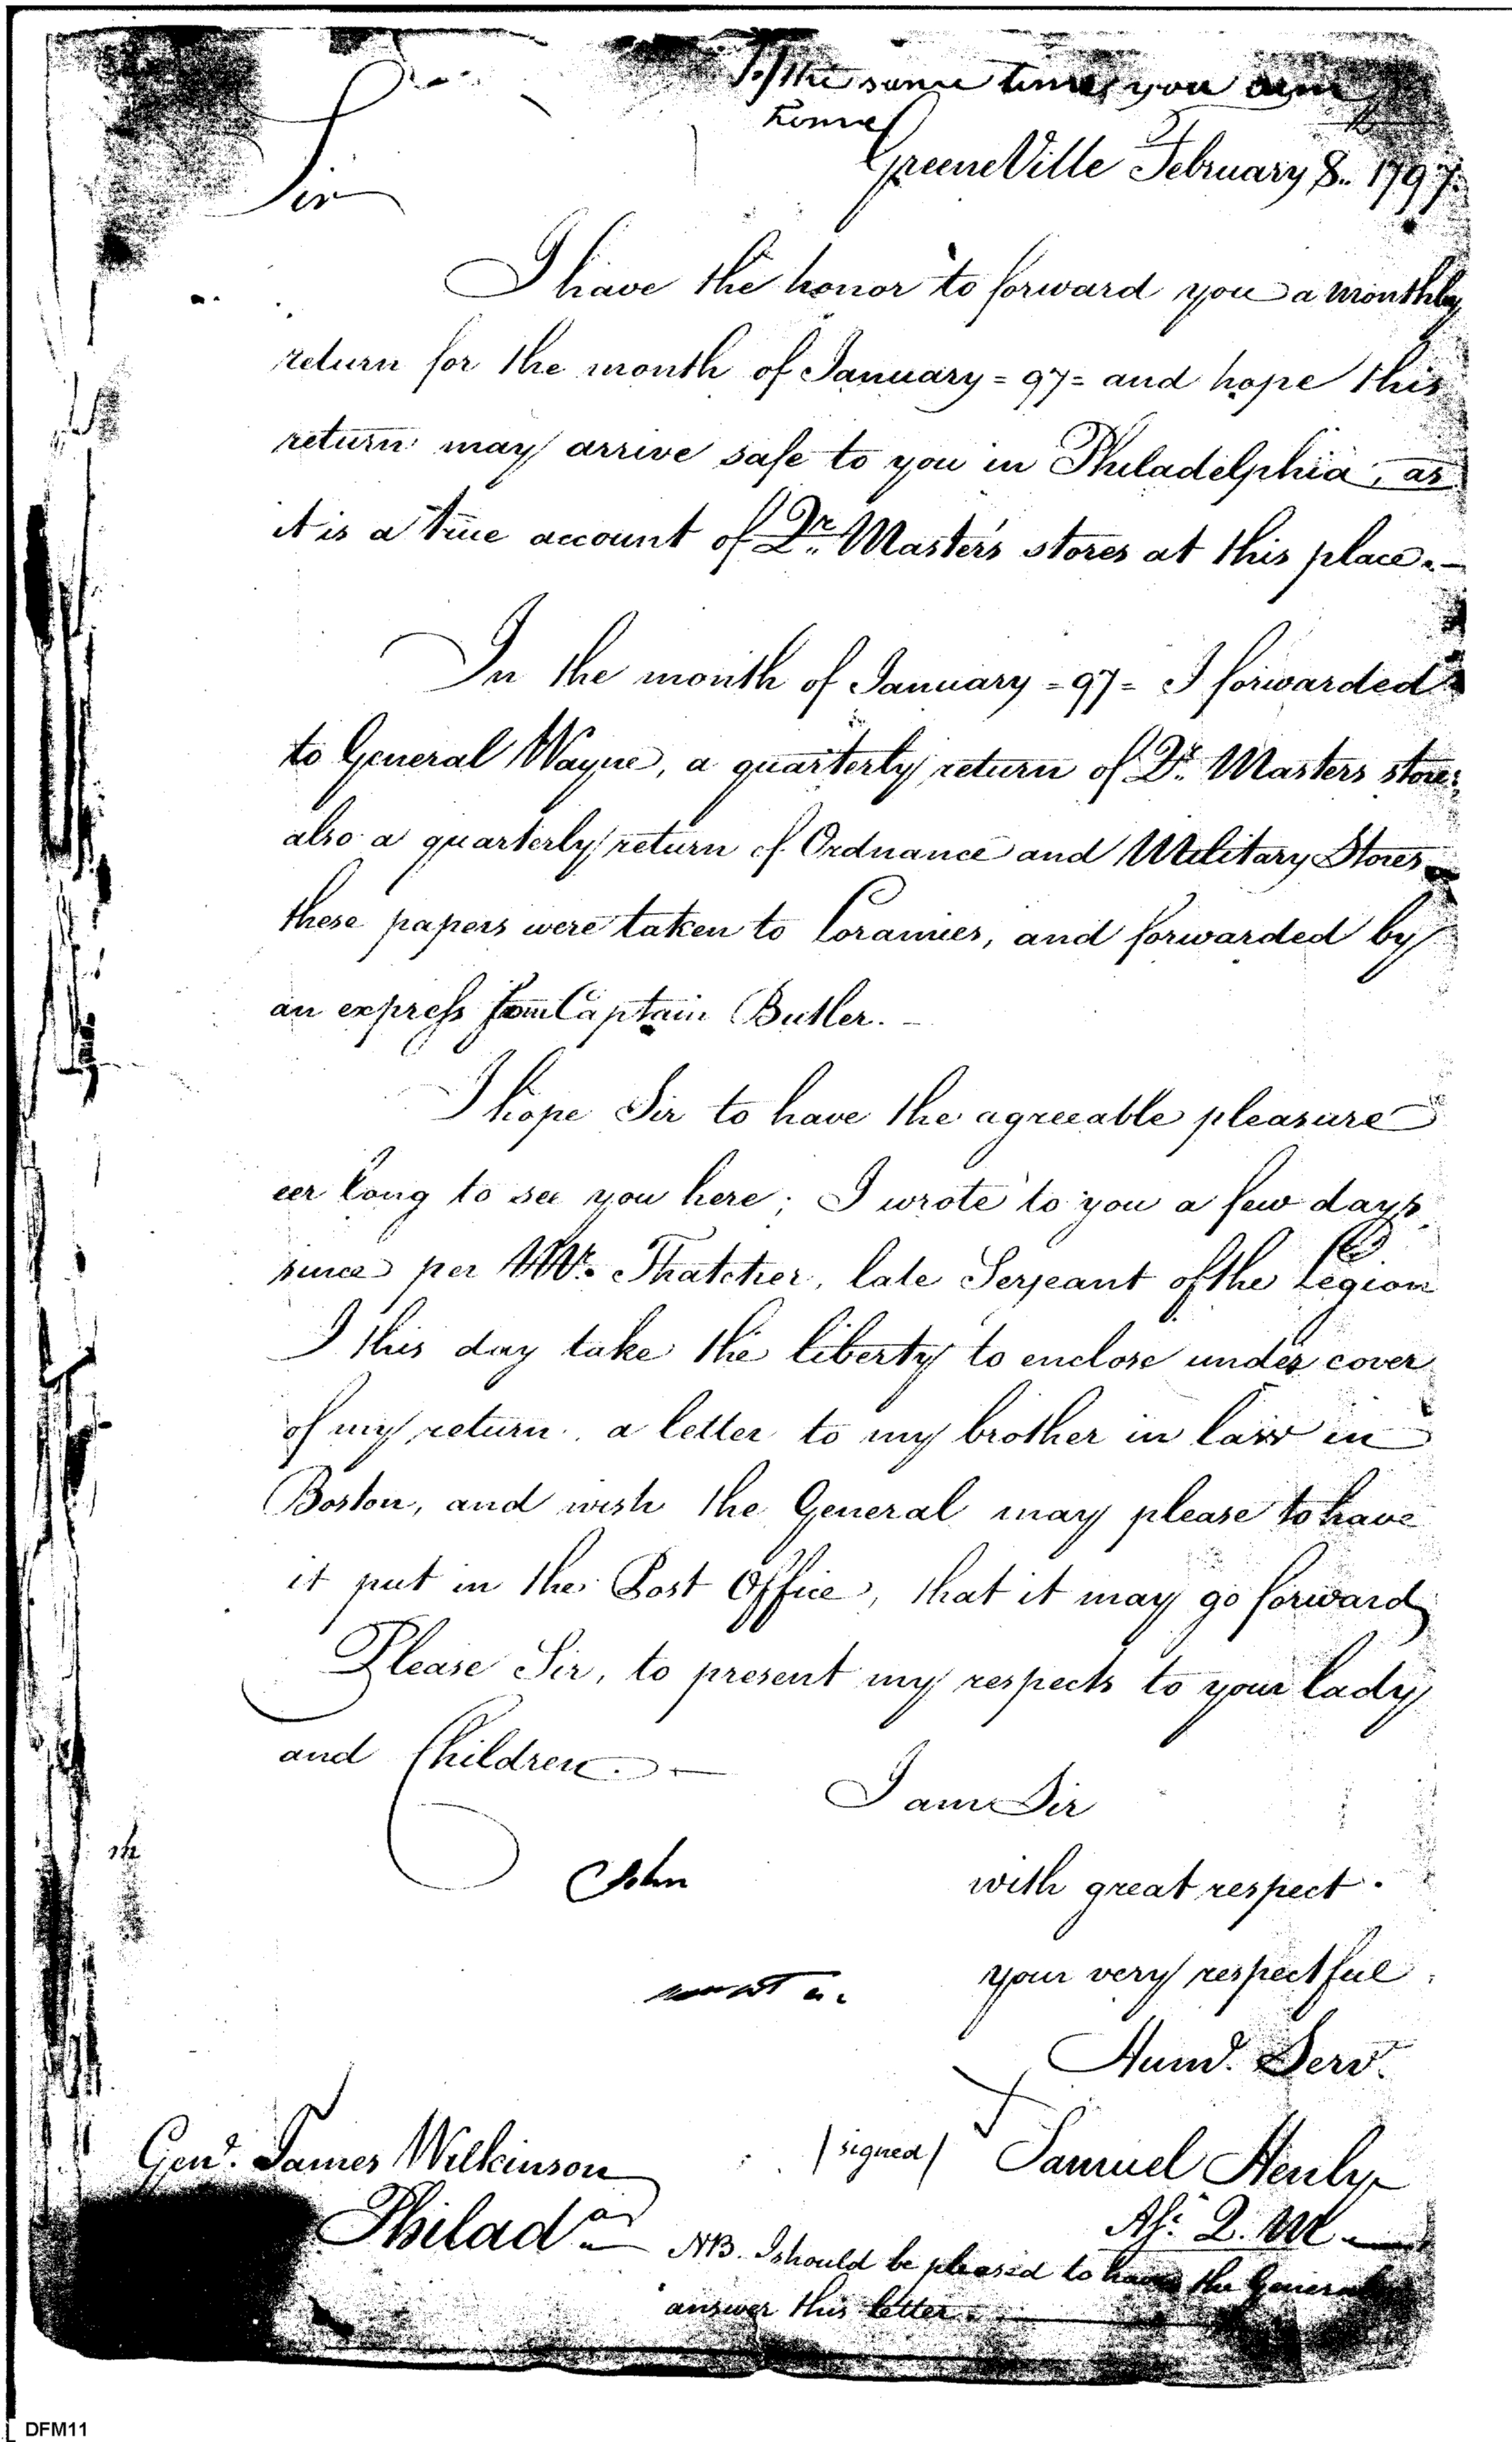 of the same times you
home
GreeneVille February 8.. 1797.
Sir
I have the honor to forward you a monthly
return for the month of January = 97 = and hope this
return may arrive safe to you in Philadelphia, as
it is a true account of Qr. Master's stores at this place. –
In the month of January = 97 = I forwarded
to General Wayne, a quarterly return of Qr. Masters stores
also a quarterly return of Ordnance and Military Stores
these papers were taken to Loramies, and forwarded by
an express from Captain Butler. –
I hope Sir to have the agreeable pleasure
eer long to see you here; I wrote to you a few days
since per Mr. Thatcher, late Serjeant of the Legion
I this day take the liberty to enclose under cover
of my return, a letter to my brother in law in
Boston, and wish the General may please to have
it put in the Post Office, that it may go forward
Please Sir, to present my respects to your lady
and Children. –
I am Sir
John
with great respect.
your very respectful
Humd. Servt.
Genl. James Wilkinson
/signed/ Samuel Henly
Philada
Ast. Q. M
NB. I should be pleased to have the General
answer this letter.
DFM11